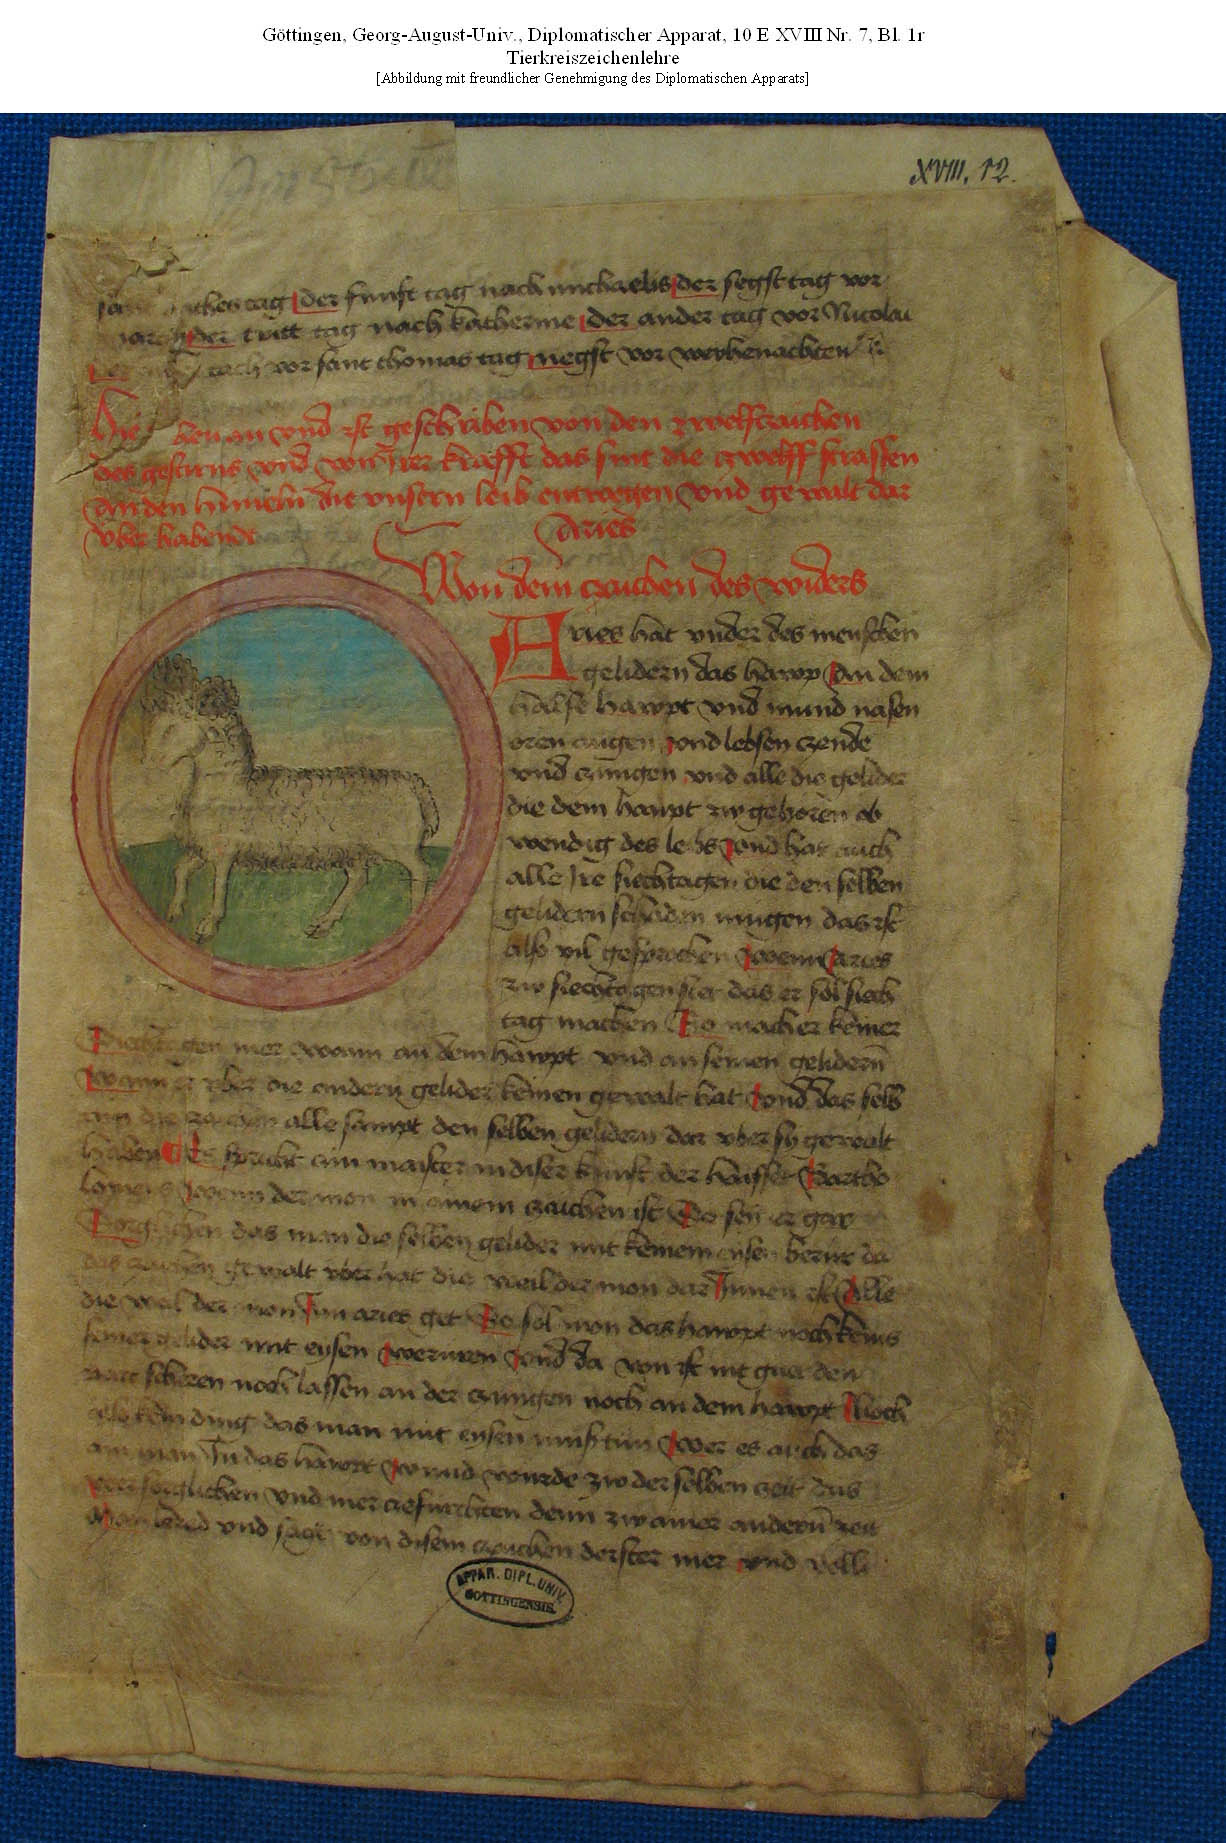 Göttingen, Georg-August-Univ., Diplomatischer Apparat, 10 E XVIII Nr. 7, Bl. 1r
Tierkreiszeichenlehre
[Abbildung mit freundlicher Genehmigung des Diplomatischen Apparats]
XVIII. 12.
tag der funft tag nach michaelis der segst tag vor
der tritt tag nach katherine der ander tag vor Nicolai
vor sant thomas tag negst vor weyhenachten
Hie vnd ist geschriben von den zwelf zaichen
des gestirns vnd von irer krafft das sint die zwelff strassen
an den himeln die vnsern leib entwegen vnd gewalt dar
vber habendt
Aries
Von dem zaichen des widers
Aries hat vnder des menschen
gelidern das hawp an dem
halse hawpt vnd mund nasen
oren augen vnd lebsen czende
vnd czungen vnd alle die gelider
die dem hawpt zw gehoren ob
wendig des leibs vnd hat auch
alle Ire siechtagen die den selben
gelidern schaden mugen das ist
also vil gesprochen wenn Aries
zw siechtagen das er sol siech
tag machen So macht er keiner
mer wann an dem hawpt vnd an seinen gelidern
wann er vber die andern gelider keinen gewalt hat vnd das selb
alle sampt den selben gelidern dar vber sy gewalt
haben Es spricht ain maister in diser kunst der haisset Bartho
lomeus wenn der mon in ainem zaichen ist So sey er gar
Sorglichen das man die selben gelider mit keinem eysen berur da
das zaichen gewalt vber hat die weil der mon dar Innen ist Alle
die weil der mon Inn aries get So sol man das hawpt noch keins
seiner gelider mit eysen beruren vnd da von ist nit gut den
part scheren noch lassen an der czungen noch an dem hawpt Noch
kein ding das man mit eysen muß tun Wer es auch das
ain man In das hawpt wund wurde zw der selben zeit das
wer sorglichen vnd mer czefurchten denn zw ainer andern zeit
vnd sagt von disem zaichen dester mer vnd
APPAR. DIPL. UNIV.
GOTTINGENSIS.